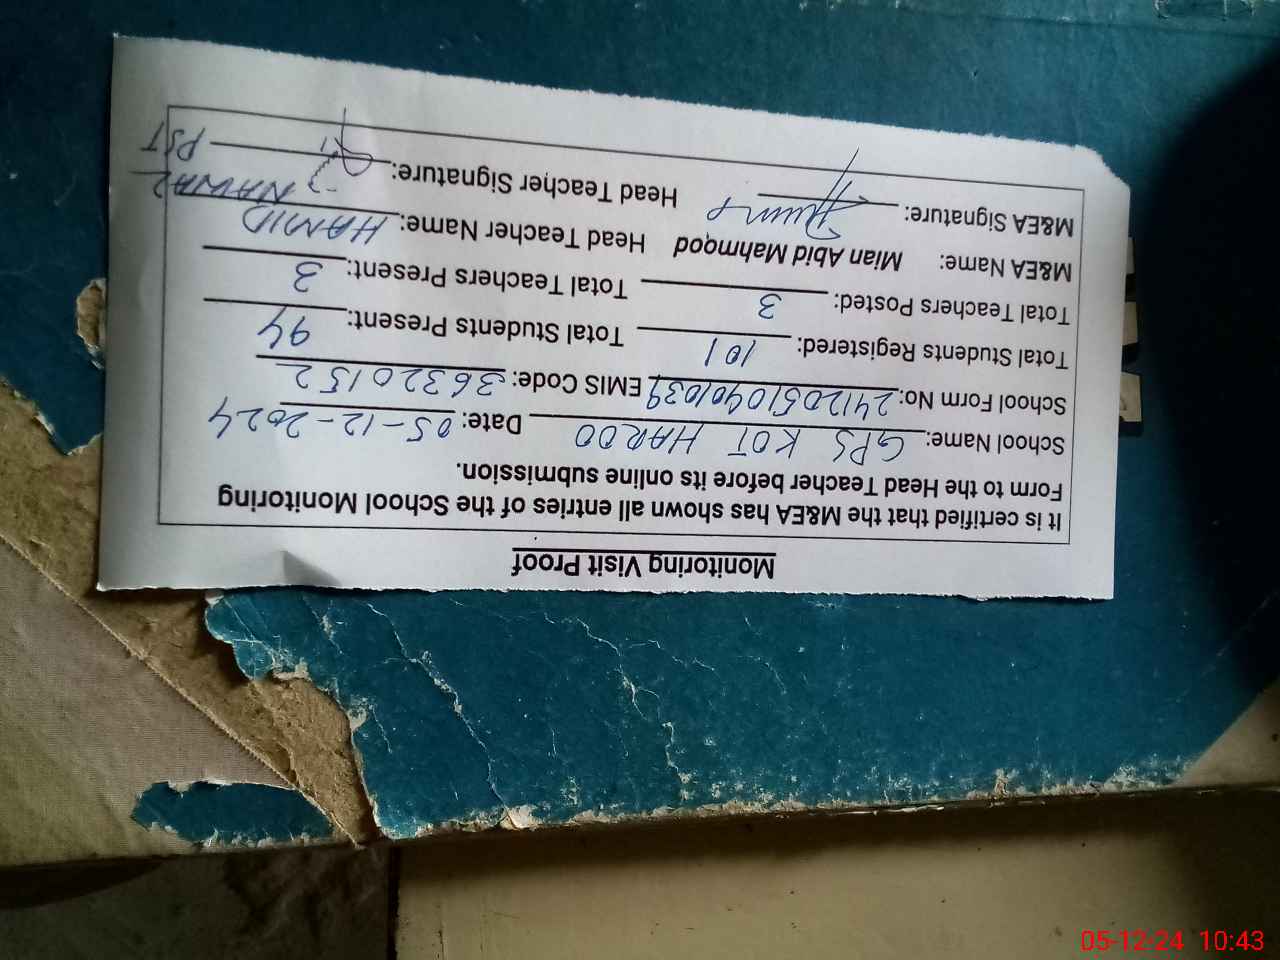 Monitoring Visit Proof
It is certified that the M&EA has shown all entries of the School Monitoring
Form to the Head Teacher before its online submission.
School Name: GPS KOT HAROO Date: 05-12-2024
School Form No: 24120510401039 EMIS Code: 36320152
Total Students Registered: 101 Total Students Present: 94
Total Teachers Posted: 3 Total Teachers Present: 3
M&EA Name: Mian Abid Mahmood Head Teacher Name: HAMID NAWAZ
M&EA Signature: Head Teacher Signature: PST
05-12-24 10:43